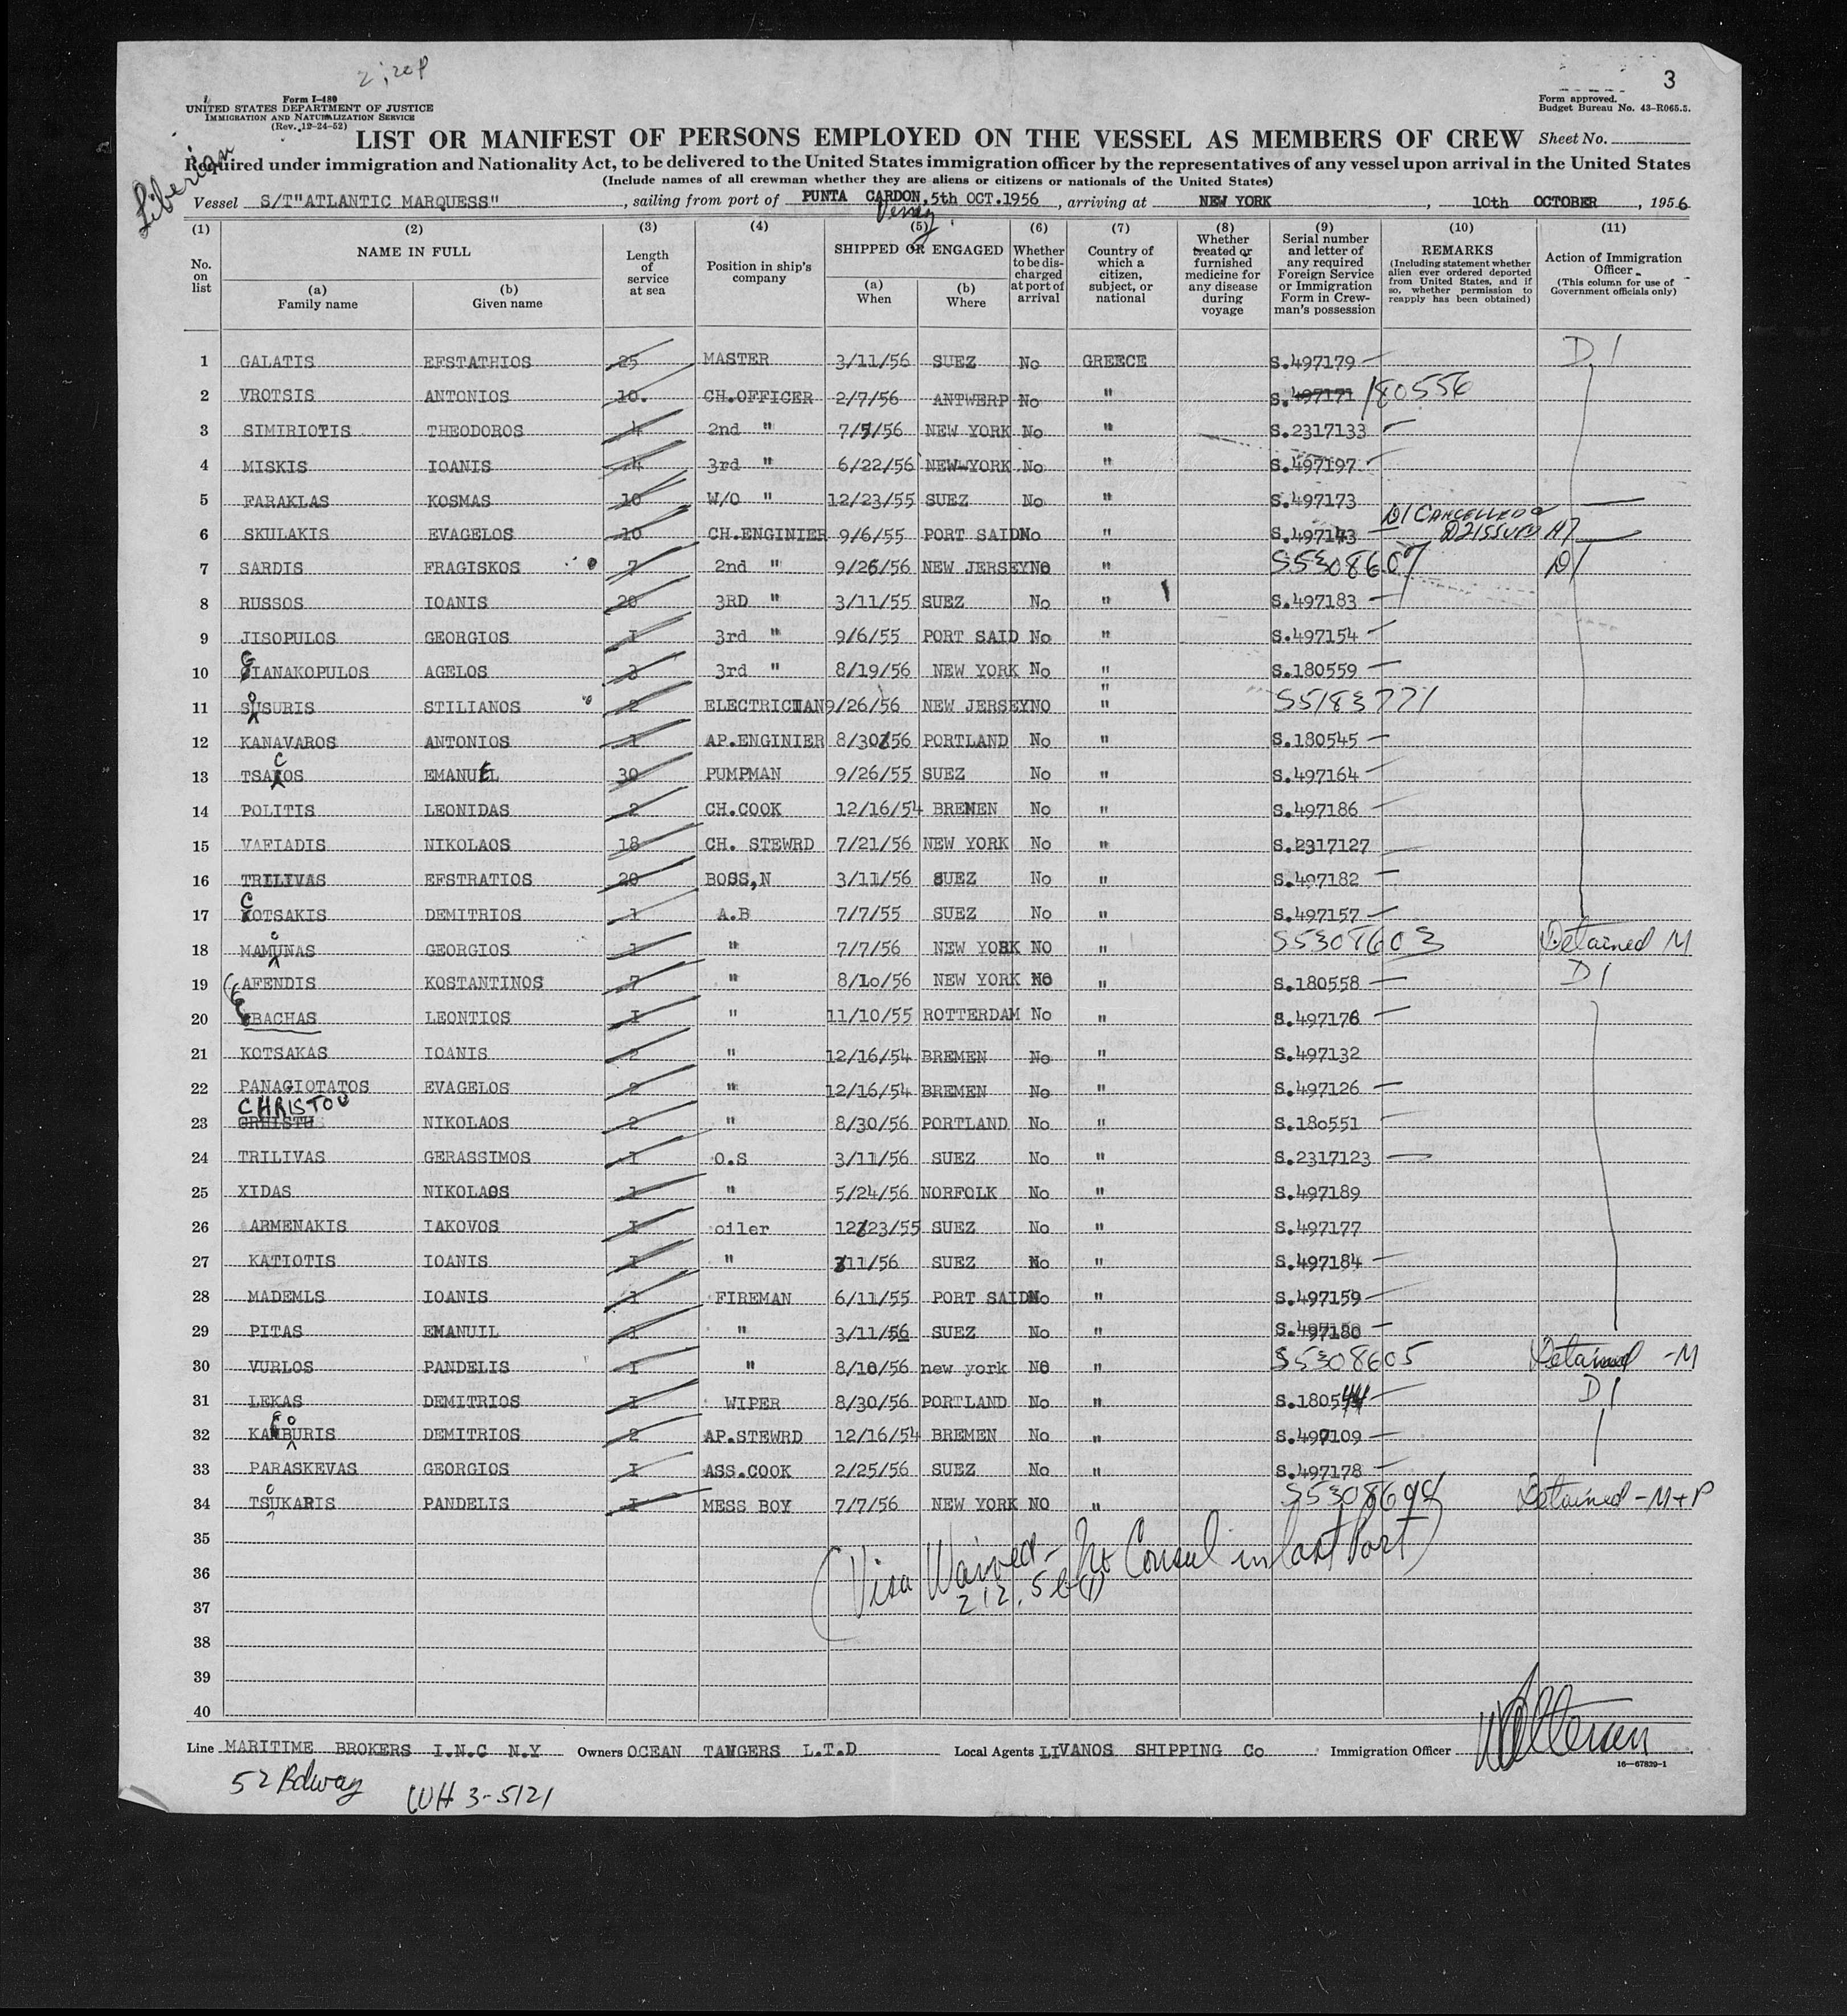 2;20P
3
Form I-480
UNITED STATES DEPARTMENT OF JUSTICE
IMMIGRATION AND NATURALIZATION SERVICE
(Rev. 12-24-52)
Form approved.
Budget Bureau No. 43-R065.5.
Liberian
LIST OR MANIFEST OF PERSONS EMPLOYED ON THE VESSEL AS MEMBERS OF CREW Sheet No.
Required under immigration and Nationality Act, to be delivered to the United States immigration officer by the representatives of any vessel upon arrival in the United States
(Include names of all crewman whether they are aliens or citizens or nationals of the United States)
Vessel S/T"ATLANTIC MARQUESS", sailing from port of PUNTA CARDON, 5th OCT.1956, arriving at NEW YORK, 10th OCTOBER, 1956
(1) No. on list
(2) NAME IN FULL
(a) Family name
(b) Given name
(3) Length of service at sea
(4) Position in ship's company
(5) SHIPPED OR ENGAGED
(a) When
(b) Where
(6) Whether to be discharged at port of arrival
(7) Country of which a citizen, subject, or national
(8) Whether treated or furnished medicine for any disease during voyage
(9) Serial number and letter of any required Foreign Service or Immigration Form in Crewman's possession
(10) REMARKS (Including statement whether alien ever ordered deported from United States, and if so, whether permission to reapply has been obtained)
(11) Action of Immigration Officer (This column for use of Government officials only)
1 GALATIS EFSTATHIOS 25 MASTER 3/11/56 SUEZ No GREECE S.497179 D1
2 VROTSIS ANTONIOS 10. CH.OFFICER 2/7/56 ANTWERP No " S.497171 180556
3 SIMIRIOTIS THEODOROS 4 2nd " 7/5/56 NEW YORK No " S.2317133
4 MISKIS IOANIS 4 3rd " 6/22/56 NEW YORK No " S.497197
5 FARAKLAS KOSMAS 10 W/O " 12/23/55 SUEZ No " S.497173
6 SKULAKIS EVAGELOS 10 CH.ENGINIER 9/6/55 PORT SAID No " S.497143 D1 CANCELLED D2 ISSUED
7 SARDIS FRAGISKOS 7 2nd " 9/26/56 NEW JERSEY No " S5308607 D1
8 RUSSOS IOANIS 20 3RD " 3/11/55 SUEZ No " S.497183
9 JISOPULOS GEORGIOS I 3rd " 9/6/55 PORT SAID No " S.497154
10 GIANAKOPULOS AGELOS 3 3rd " 8/19/56 NEW YORK No " S.180559
11 SOUSURIS STILIANOS 2 ELECTRICIAN 9/26/56 NEW JERSEY NO " S5183771
12 KANAVAROS ANTONIOS 1 AP.ENGINIER 8/30/56 PORTLAND No " S.180545
13 TSACOS EMANUEL 30 PUMPMAN 9/26/55 SUEZ No " S.497164
14 POLITIS LEONIDAS 2 CH.COOK 12/16/54 BREMEN No " S.497186
15 VAFIADIS NIKOLAOS 18 CH. STEWRD 7/21/56 NEW YORK No " S.2317127
16 TRILIVAS EFSTRATIOS 20 BOSS,N 3/11/56 SUEZ No " S.497182
17 COTSAKIS DEMITRIOS 1 A.B 7/7/55 SUEZ No " S.497157
18 MAMOUNAS GEORGIOS 1 " 7/7/56 NEW YORK NO " S5308603 Detained M
19 AFENDIS KOSTANTINOS 7 " 8/10/56 NEW YORK NO " S.180558 D1
20 BACHAS LEONTIOS I " 11/10/55 ROTTERDAM No " S.497176
21 KOTSAKAS IOANIS 2 " 12/16/54 BREMEN No " S.497132
22 PANAGIOTATOS EVAGELOS 2 " 12/16/54 BREMEN No " S.497126
23 CHRISTOU NIKOLAOS 2 " 8/30/56 PORTLAND No " S.180551
24 TRILIVAS GERASSIMOS I O.S 3/11/56 SUEZ No " S.2317123
25 XIDAS NIKOLAOS 1 " 5/24/56 NORFOLK No " S.497189
26 ARMENAKIS IAKOVOS I oiler 12/23/55 SUEZ No " S.497177
27 KATIOTIS IOANIS I " 3/11/56 SUEZ No " S.497184
28 MADEMLS IOANIS 1 FIREMAN 6/11/55 PORT SAID No " S.497159
29 PITAS EMANUIL 1 " 3/11/56 SUEZ No " S.497180
30 VURLOS PANDELIS I " 8/10/56 new york NO " S5308605 Detained -M
31 LEKAS DEMITRIOS I WIPER 8/30/56 PORTLAND No " S.180544 D1
32 KAMBOURIS DEMITRIOS 2 AP.STEWRD 12/16/54 BREMEN No " S.497109
33 PARASKEVAS GEORGIOS I ASS.COOK 2/25/56 SUEZ No " S.497178
34 TSOUKARIS PANDELIS I MESS BOY 7/7/56 NEW YORK NO " Detained -M+P
35
(Visa Waived - No Consul in last Port)
36
212.5
37
38
39
40
Line MARITIME BROKERS I.N.C N.Y Owners OCEAN TANGERS L.T.D Local Agents LIVANOS SHIPPING Co Immigration Officer
16-67829-1
52 Bdway WH 3-5121